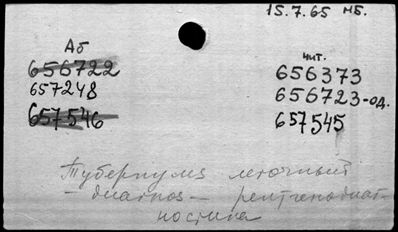 15.7.65 МБ.
Аб
656722
657248
657546
чит.
656373
656723-од.
657545
Туберкулез легочный
- диагноз - рентгенодиаг-
ностика